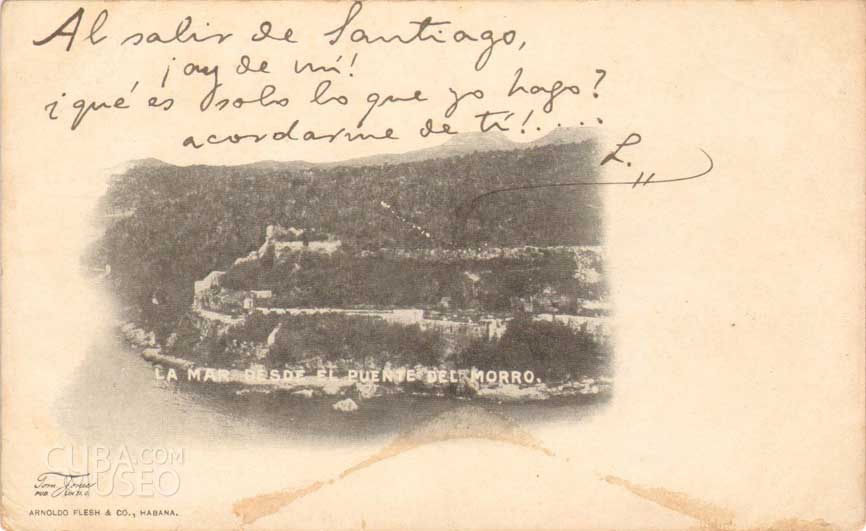 Al salir de Santiago,
¡ay de mí!
¿qué es solo lo que yo hago?
acordarme de tí!.....
L.
LA MAR DESDE EL PUENTE DEL MORRO.
CUBA.COM
MUSEO
Tom Jones
PUB.
ARNOLDO FLESH & CO., HABANA.